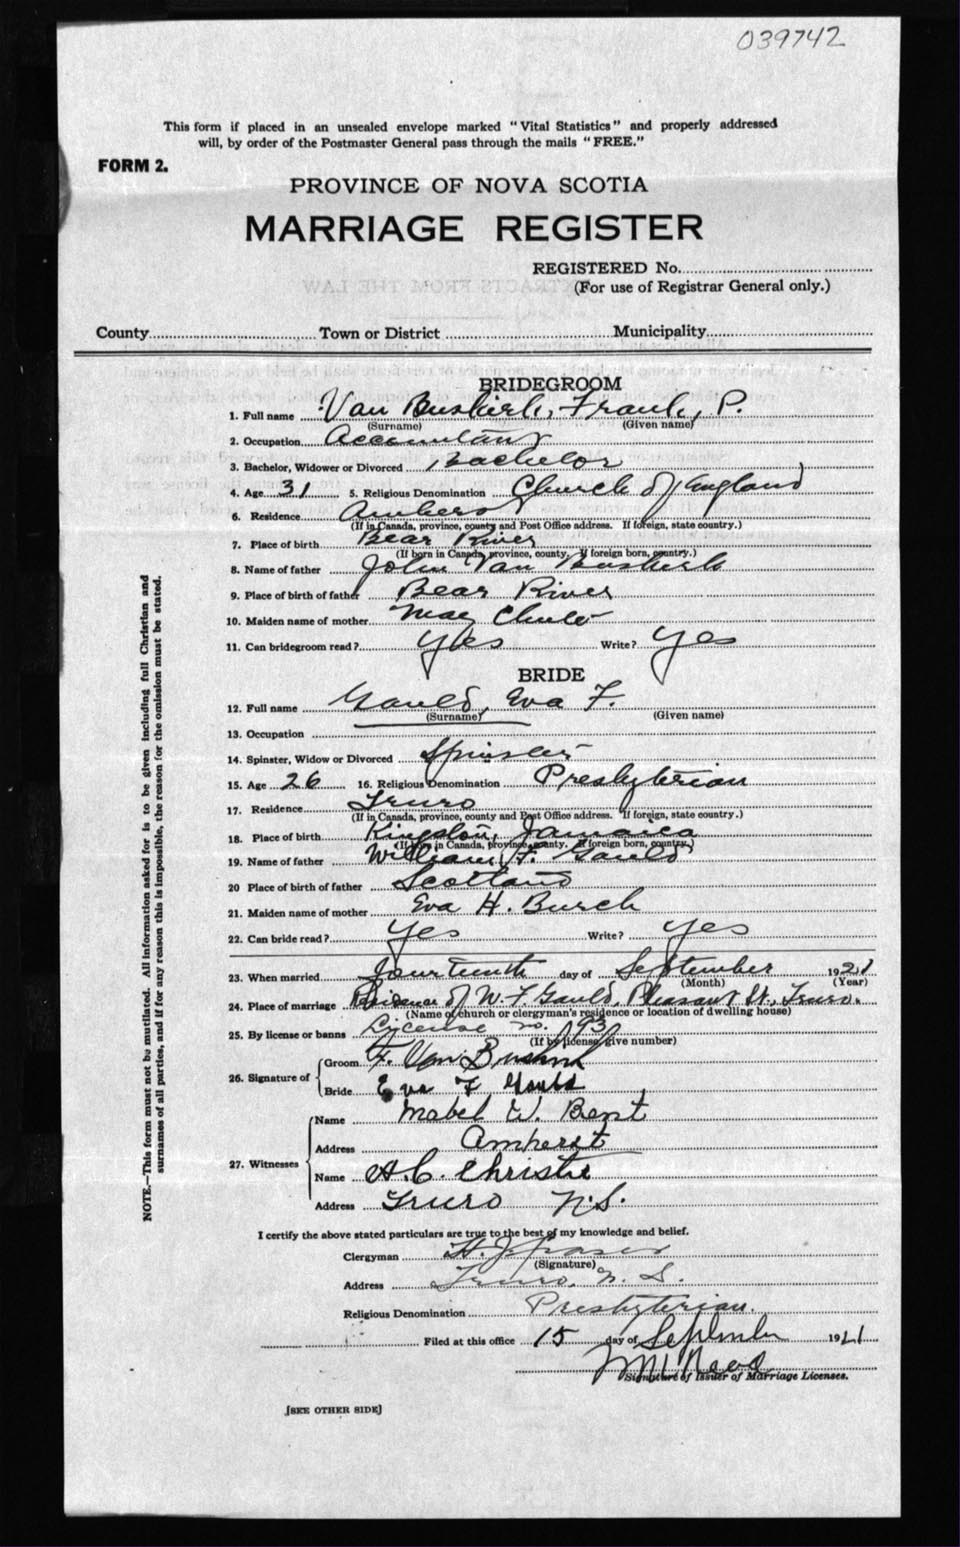 039742
This form if placed in an unsealed envelope marked "Vital Statistics" and properly addressed
will, by order of the Postmaster General pass through the mails "FREE."
FORM 2.
PROVINCE OF NOVA SCOTIA
MARRIAGE REGISTER
REGISTERED No.
(For use of Registrar General only.)
County Town or District Municipality
BRIDEGROOM
1. Full name Van Buskirk, Frank, P.
(Surname) (Given name)
2. Occupation Accountant
3. Bachelor, Widower or Divorced Bachelor
4. Age 31 5. Religious Denomination Church of England
6. Residence Amherst
(If in Canada, province, county and Post Office address. If foreign, state country.)
7. Place of birth Bear River
(If born in Canada, province, county. If foreign born, country.)
8. Name of father John Van Buskirk
9. Place of birth of father Bear River
10. Maiden name of mother May Chute
11. Can bridegroom read? Yes Write? Yes
BRIDE
12. Full name Gauld, Eva F.
(Surname) (Given name)
13. Occupation
14. Spinster, Widow or Divorced Spinster
15. Age 26 16. Religious Denomination Presbyterian
17. Residence Truro
(If in Canada, province, county and Post Office address. If foreign, state country.)
18. Place of birth Kingston, Jamaica
(If born in Canada, province, county. If foreign born, country.)
19. Name of father William F. Gauld
20 Place of birth of father Scotland
21. Maiden name of mother Eva H. Burch
22. Can bride read? Yes Write? Yes
23. When married fourteenth day of September 1921
(Month) (Year)
24. Place of marriage Residence of W. F. Gauld, Pleasant St., Truro.
(Name of church or clergyman's residence or location of dwelling house)
25. By license or banns License no.
(If by license, give number)
26. Signature of
Groom F. Van Buskirk
Bride Eva F Gauld
27. Witnesses
Name Mabel W. Bent
Address Amherst
Name A. C. Christie
Address Truro N.S.
I certify the above stated particulars are true to the best of my knowledge and belief.
Clergyman Fraser
(Signature)
Address Truro, N. S.
Religious Denomination Presbyterian.
Filed at this office 15 day of September 1921
Signature of Issuer of Marriage Licenses.
[SEE OTHER SIDE]
NOTE.—This form must not be mutilated. All information asked for is to be given including full Christian and
surnames of all parties, and if for any reason this is impossible, the reason for the omission must be stated.